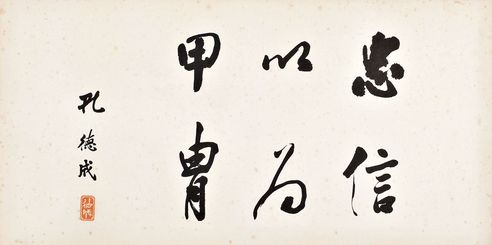 忠信
以为
甲胄
孔德成